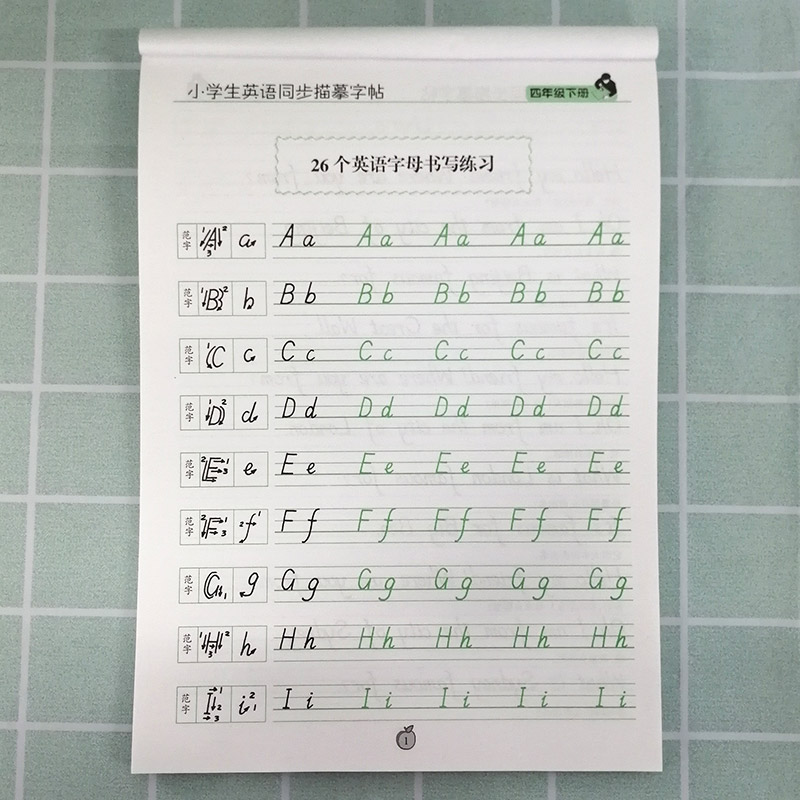 小学生英语同步描摹字帖 四年级下册
26个英语字母书写练习
范字 A a A a A a A a A a A a
范字 B b B b B b B b B b B b
范字 C c C c C c C c C c C c
范字 D d D d D d D d D d D d
范字 E e E e E e E e E e E e
范字 F f F f F f F f F f F f
范字 G g G g G g G g G g G g
范字 H h H h H h H h H h H h
范字 I i I i I i I i I i I i
1